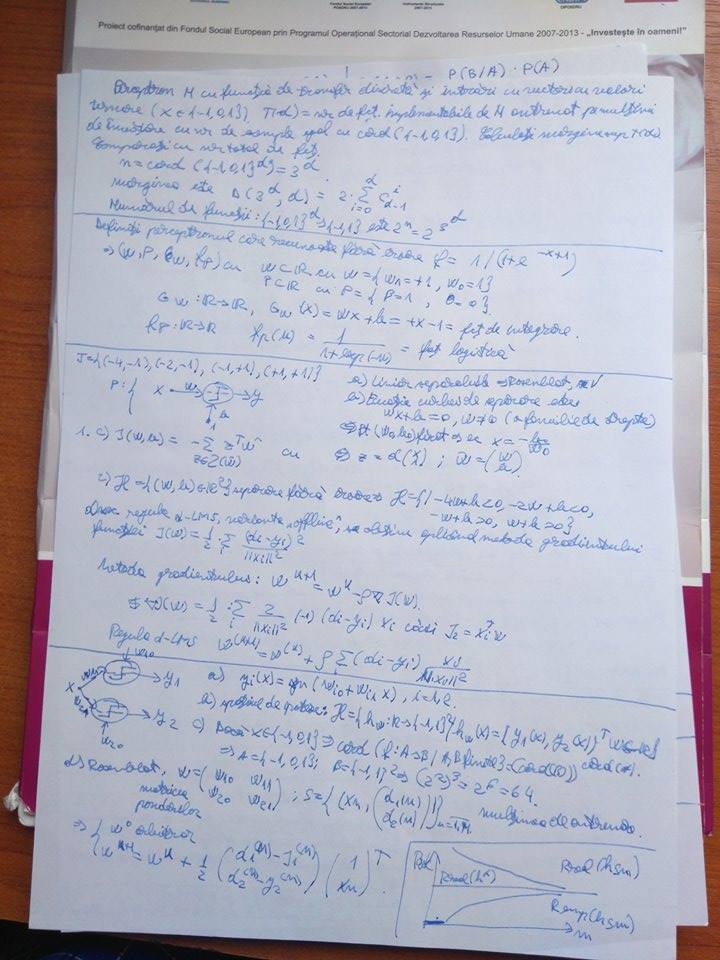 Fondul Social European
POSDRU 2007-2013
Instrumente Structurale
2007-2013
OIPOSDRU
Proiect cofinanțat din Fondul Social European prin Programul Operațional Sectorial Dezvoltarea Resurselor Umane 2007-2013 - „Investește în oameni!”
P(B/A) · P(A)
Perceptron M cu funcția de transfer discretă și intrări cu vectori cu valori
ternare (X ∈ {-1,0,1}^d). T(d) = nr de fcț. implementabile de M antrenat pe mulțimi
de învățare cu nr de exemple egal cu card({-1,0,1}^d). Calculați marginea sup T(d).
Comparați cu nr total de fcț.
n = card({-1,0,1}^d) = 3^d
marginea este D(3^d, d) = 2·∑_{i=0}^{d}
Numărul de funcții: {-1,0,1}^d → {-1,1} este 2^n = 2^{3^d}
Definiți perceptronul care recunoaște fără eroare f = 1/(1+e^{-x+1})
⇒ (W, P, G_w, f_p) cu W⊂ℝ cu W = {w_1 = +1, w_0 = 1}
P⊂ℝ cu P = {β=1, θ=0}
G_w : ℝ→ℝ, G_w(x) = wx + b = +x - 1 = fcț de integrare.
f_p : ℝ→ℝ f_p(u) = 1/(1+exp(-u)) = fcț logistică
J = {(-4,-1), (-2,-1), (-1,+1), (+1,+1)}
P: { X → y
a) Liniar separabilă ⇒ Rosenblatt
b) Ecuația curbei de separare este
wx + b = 0, w ≠ 0 (o familie de drepte)
(w_0, b_0) fixat x = -b_0/w_0
1. c) J(w,b) = -∑_{z∈Z(w̃)} z^T w̃ cu z = α(x) ; w̃ = (w b)
c) H = {(w,b) ∈ ℝ², separare fără eroare} H = {-4w+b<0, -2w+b<0,
-w+b>0, w+b>0}
regula α-LMS, varianta „offline”, se obține aplicând metoda gradientului
funcției J(w) = 1/2 · ∑_i (d_i - y_i)²/||x_i||²
Metoda gradientului: w^{k+1} = w^k - ρ∇J(w).
∇J(w) = 1/2 · ∑_i 2/||x_i||² (-1) (d_i - y_i) x_i căci
Regula α-LMS w^{(k+1)} = w^{(k)} + ρ∑(d_i - y_i) x_i/||x_i||²
X → y_1 → y_2 w_10 w_20
a) y_i(x) = sgn(w_i0 + w_i1 x), i = 1,2.
b) H = {h_w : ℝ → {-1,1}² / h_w(x) = [y_1(x), y_2(x)]^T
c) Dacă X ∈ {-1,0,1} ⇒ card {f : A→B / A,B finite} = (card(B))^{card(A)}.
⇒ A = {-1,0,1}; B = {-1,1}² ⇒ (2²)³ = 2^6 = 64.
d) Rosenblatt, W = (w_10 w_11 w_20 w_21) ; S = {(x_m, (d_1(m) d_2(m)))}_{m=1,M} mulțimea de antrenare.
matricea
ponderilor
⇒ { w^0 arbitrar
w^{k+1} = w^k + 1/2 (d_1^{(m)} - y_1^{(m)} d_2^{(m)} - y_2^{(m)}) (1 x_m)^T
Remp(hsm)
m